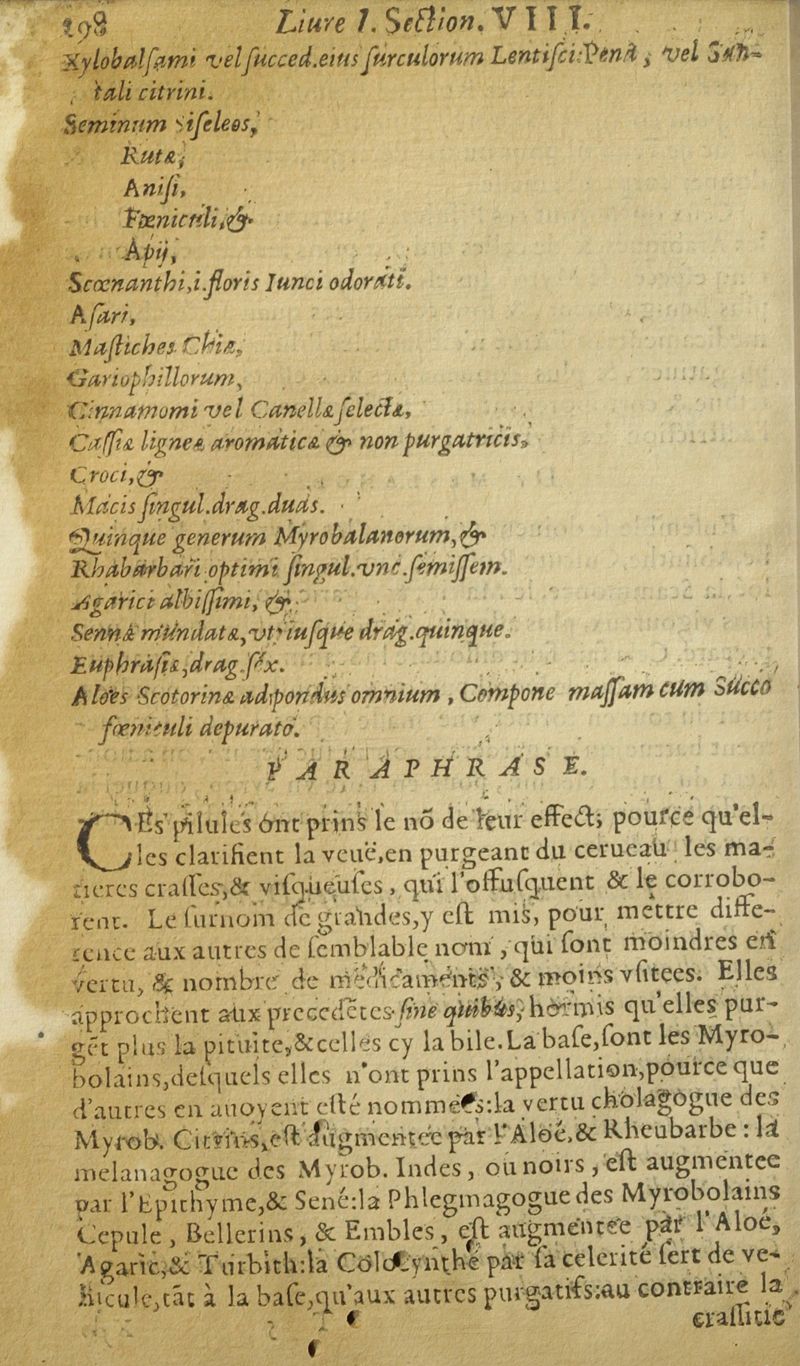 198 Liure I. Section. VIII.
Xylobalsami vel succed. eius surculorum Lentisci: Penè, vel San-
tali citrini.
Seminum siseleos,
Rutæ,
Anisi,
Fœniculi, &
Apij,
Scœnanthi, i. floris Iunci odorati.
Asari,
Mastiches Chiæ,
Gariophillorum,
Cinnamomi vel Canellæ selectæ,
Cassiæ ligneæ aromaticæ & non purgatricis,
Croci, &
Macis singul. drag. duas.
Quinque generum Myrobalanorum, &
Rhabarbari optimi singul. vnc. semissem.
Agarici albissimi, &
Sennæ mundatæ, vtriusque drag. quinque.
Euphrasiæ, drag. sex.
Aloes Scotorinæ ad pondus omnium, Compone massam cum Succo
fœniculi depurato.
PARAPHRASE.
CEs pilules ont prins le nõ de leur effect; pource qu'el-
les clarifient la veuë, en purgeant du cerueau les ma-
tieres crasses, & visqueuses, qui l'offusquent & le corrobo-
rent. Le surnom de grandes, y est mis, pour mettre diffe-
rence aux autres de semblable nom, qui sont moindres en
vertu, & nombre de medicaments, & moins vsitees. Elles
approchent aux precedẽtes sine quibus, hormis qu'elles pur-
gẽt plus la pituite, & celles cy la bile. La base, sont les Myro-
bolains, desquels elles n'ont prins l'appellation, pource que
d'autres en auoyent esté nommées: la vertu cholagogue des
Myrob. Citrins, est augmentée par l'Aloé, & Rheubarbe: la
melanagogue des Myrob. Indes, ou noirs, est augmentee
par l'Epithyme, & Sené: la Phlegmagogue des Myrobolains
Cepule, Bellerins, & Embles, est augmentée par l'Aloé,
Agaric, & Turbith: la Colocynthe par sa celerité sert de ve-
hicule, tãt à la base, qu'aux autres purgatifs: au contraire la
crassitie